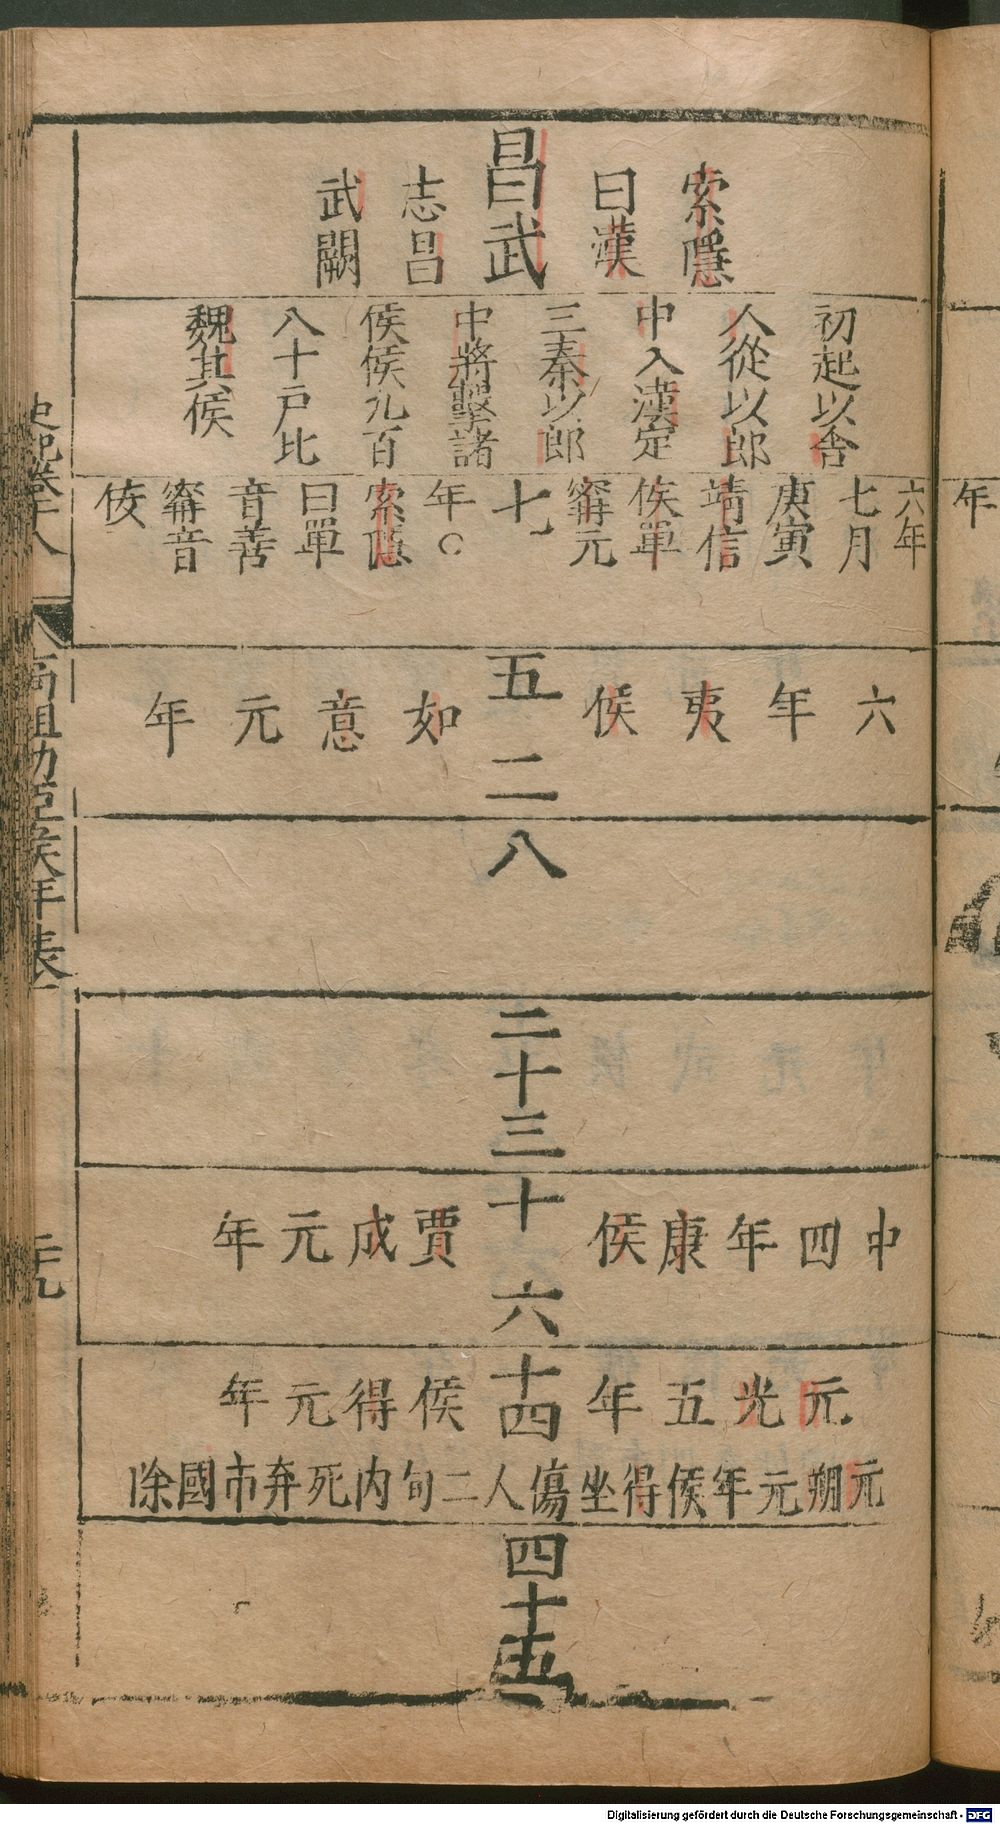 索隱
曰漢
昌武
志昌
武闕
初起以舍
人從以郎
中入漢定
三秦以郎
中將擊諸
侯侯九百
八十戶比
魏其侯
六年
七月
庚寅
靖信
侯單
甯元
七
年○
索隱
曰單
音善
甯音
佞
六年夷侯
五
二
如意元年
八
二十三
中四年康侯
十
六
賈成元年
元光五年
十四
侯得元年
元朔元年侯得坐傷人二旬内死弃市國除
四十五
史記卷十八
高祖功臣侯年表
二九
年
Digitalisierung gefördert durch die Deutsche Forschungsgemeinschaft - DFG